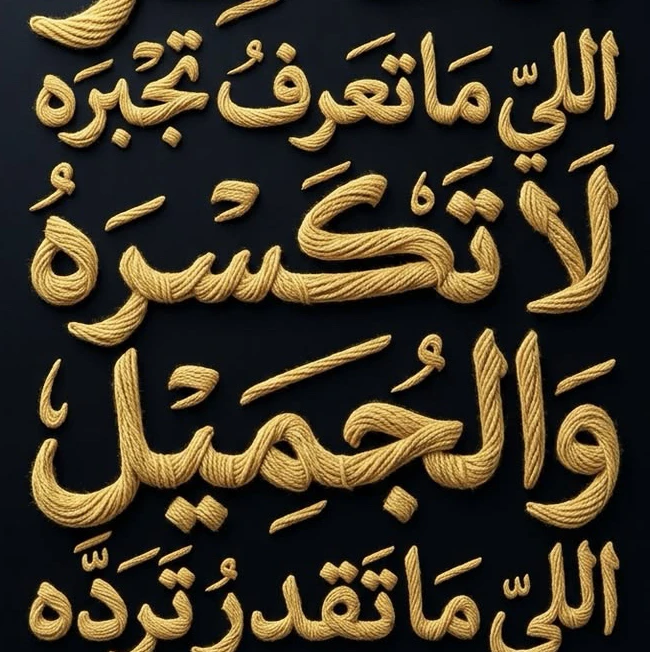 اللي مَا تعَرفُ تجْبرَه
لَا تَكْسرَهُ
وَالجُمَيْل
اللّي مَا تَقَدرُ تَردَّه